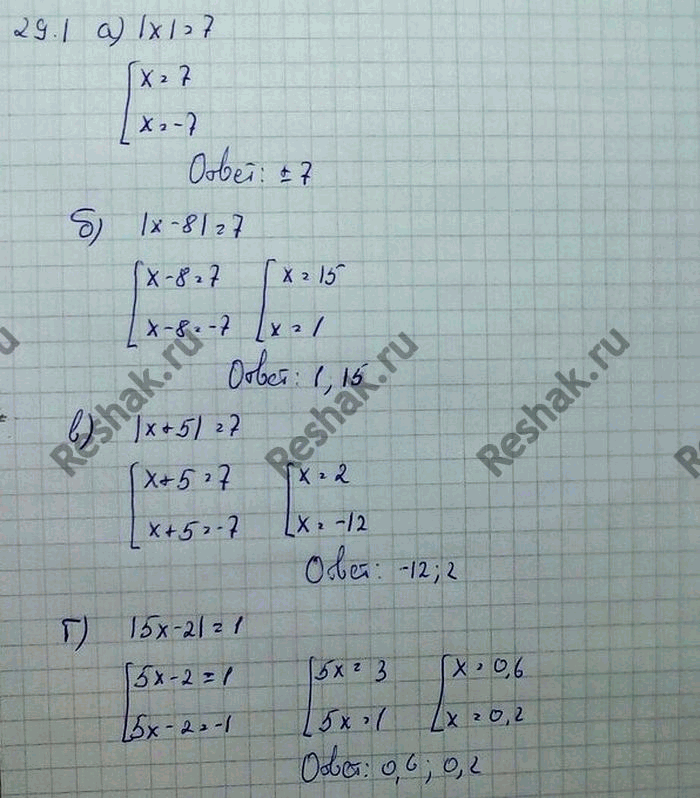 29.1 а) |x| = 7
[ x = 7
[ x = -7
Ответ: ± 7
б) |x - 8| = 7
[ x - 8 = 7 [ x = 15
[ x - 8 = -7 [ x = 1
Ответ: 1, 15
в) |x + 5| = 7
[ x + 5 = 7 [ x = 2
[ x + 5 = -7 [ x = -12
Ответ: -12; 2
г) |5x - 2| = 1
[ 5x - 2 = 1 [ 5x = 3 [ x = 0,6
[ 5x - 2 = -1 [ 5x = 1 [ x = 0,2
Ответ: 0,6; 0,2
Reshak.ru
Reshak.ru
Reshak.ru